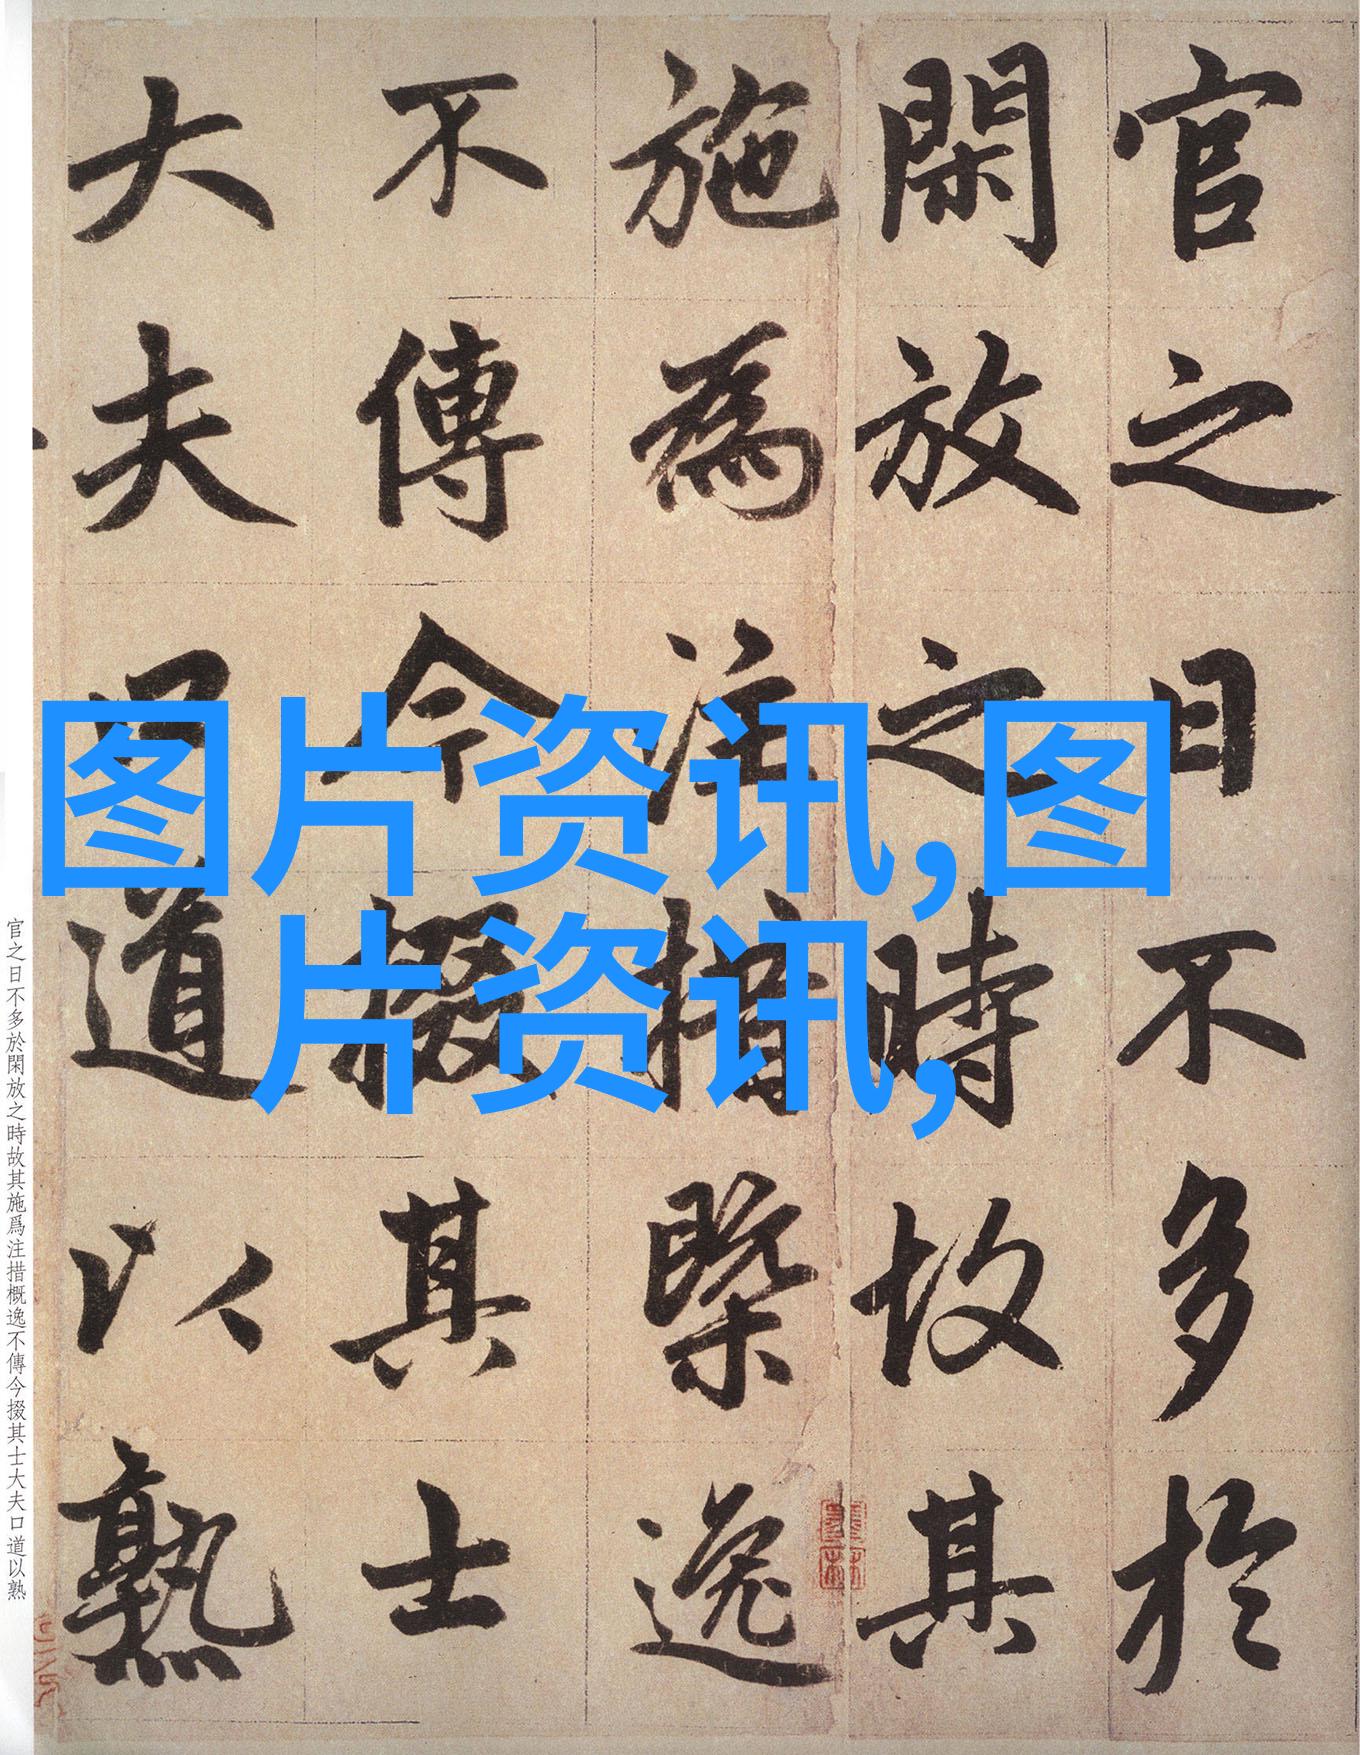 官之日不多於
閑放之時故其
施為注措槩逸
不傳今掇其士
大夫口道以熟
图片资讯,图
片资讯,
官之日不多於閑放之時故其施爲注措概逸不傳今掇其士大夫口道以熟